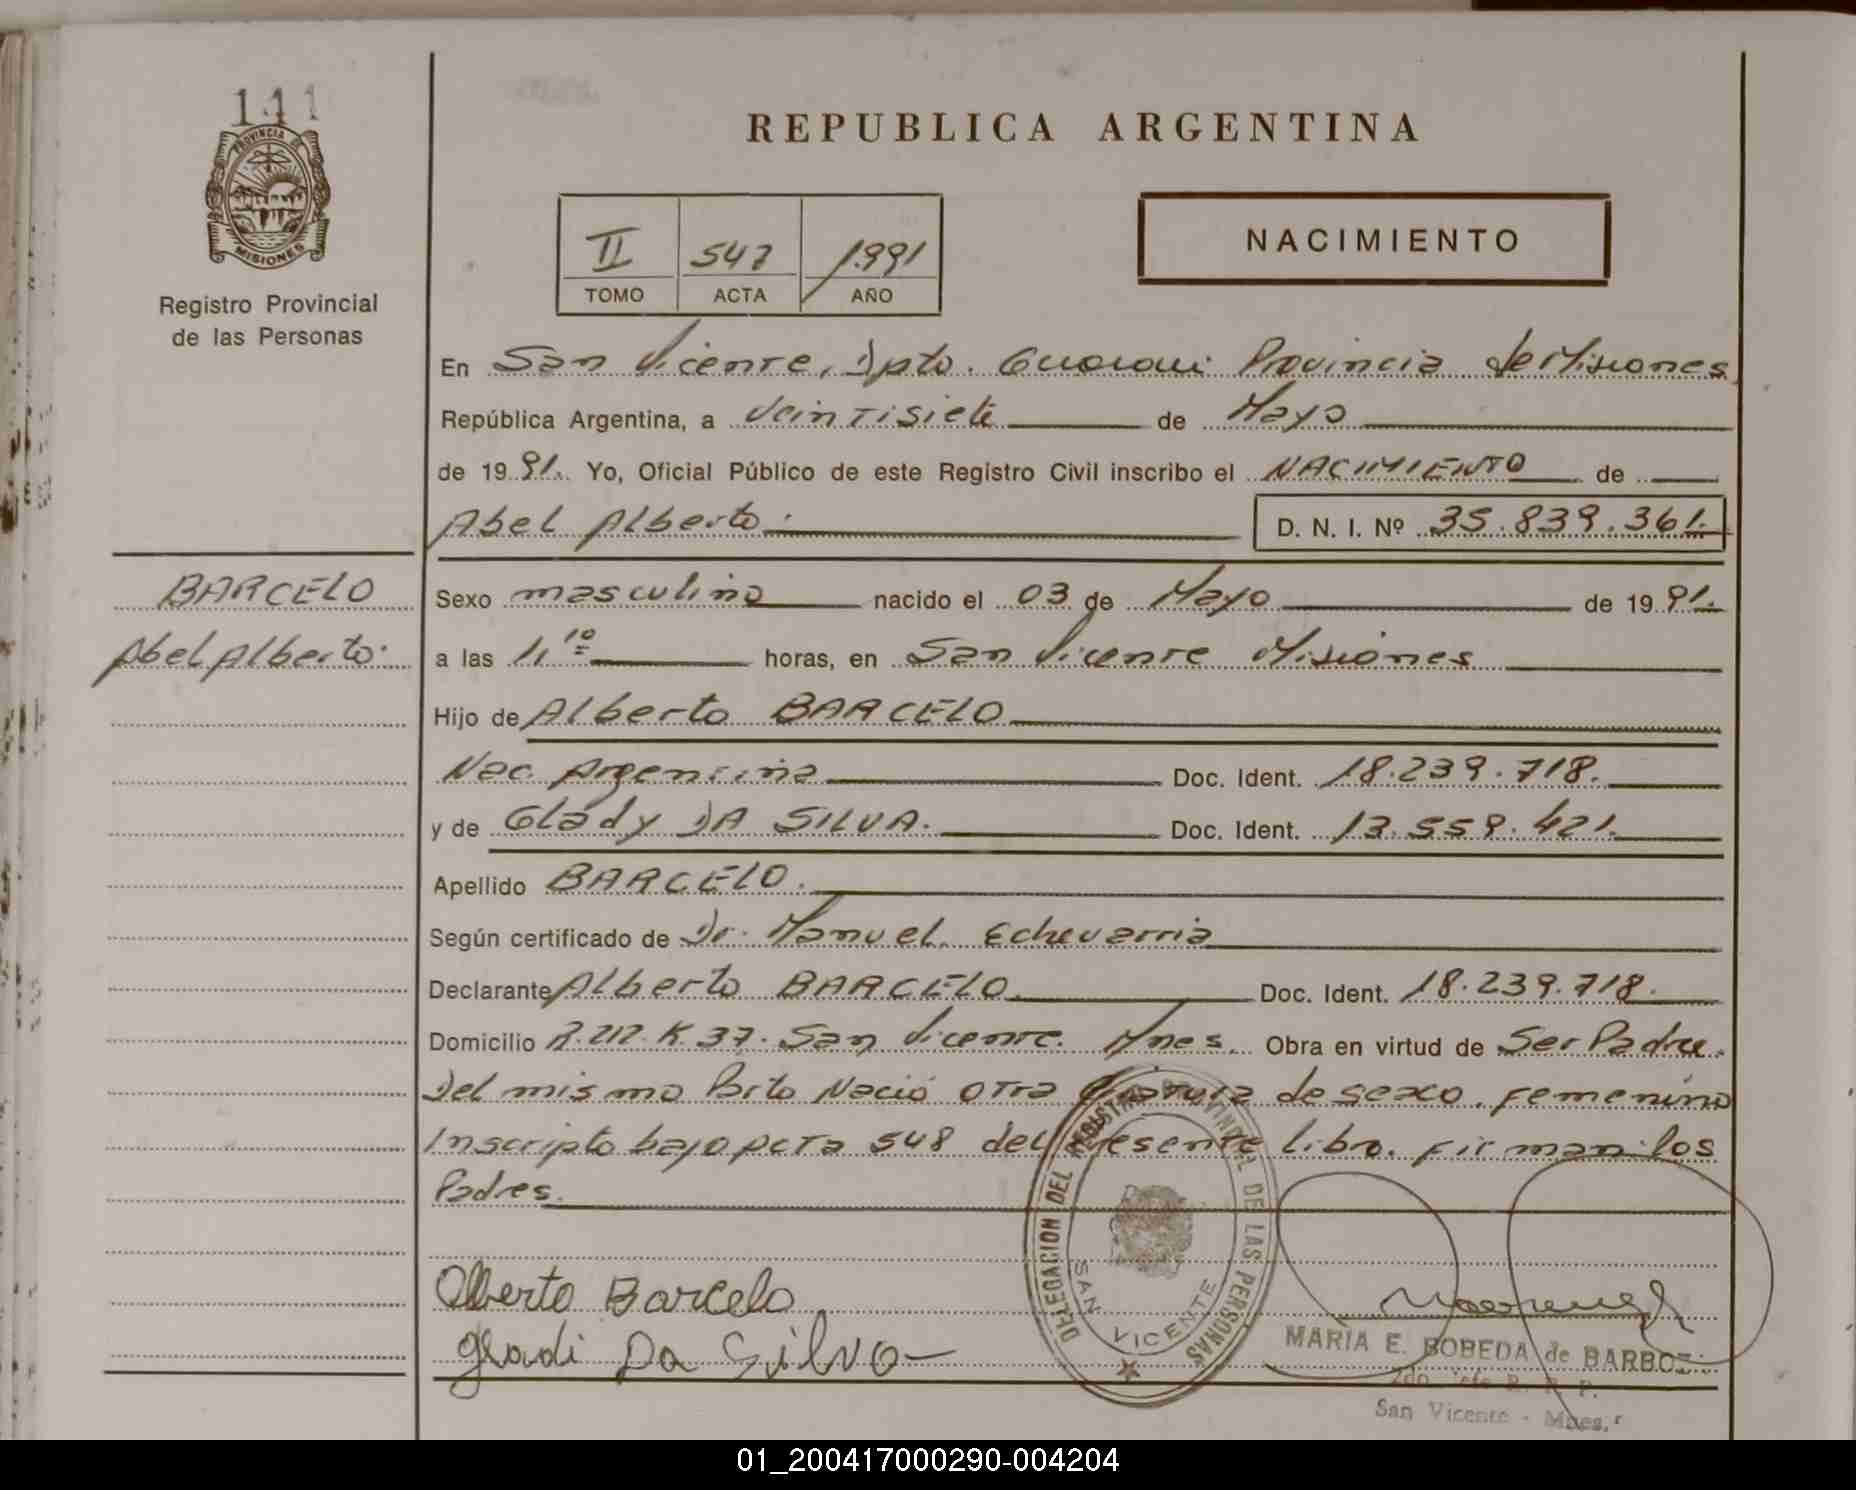 141
PROVINCIA DE
MISIONES
Registro Provincial
de las Personas
REPUBLICA ARGENTINA
II 547 1.991
TOMO ACTA AÑO
NACIMIENTO
En San Vicente, Dpto. Guarani Provincia de Misiones
República Argentina, a veintisiete de Mayo
de 19 91. Yo, Oficial Público de este Registro Civil inscribo el NACIMIENTO de
Abel Alberto. D. N. I. Nº 35.839.361.
BARCELO
Abel Alberto.
Sexo masculino nacido el 03 de Mayo de 19 91.
a las 11 10 horas, en San Vicente Misiones
Hijo de Alberto BARCELO
Nac. Argentina Doc. Ident. 18.239.718.
y de Glady DA SILVA. Doc. Ident. 13.559.421.
Apellido BARCELO.
Según certificado de Dr. Manuel Echevarria
Declarante Alberto BARCELO Doc. Ident. 18.239.718.
Domicilio K. 37. San Vicente. Mnes. Obra en virtud de Ser Padre.
Del mismo Parto Nació otra Criatura de sexo femenino
Inscripto bajo acta 548 del presente libro. firman los
Padres.
Alberto Barcelo
gladi Da Silva
DELEGACION DEL REGISTRO PROVINCIAL DE LAS PERSONAS
SAN VICENTE
MARIA E. BOBEDA de BARBOZ
2do. Jefe R. P. P.
San Vicente - Mnes.
01_200417000290-004204